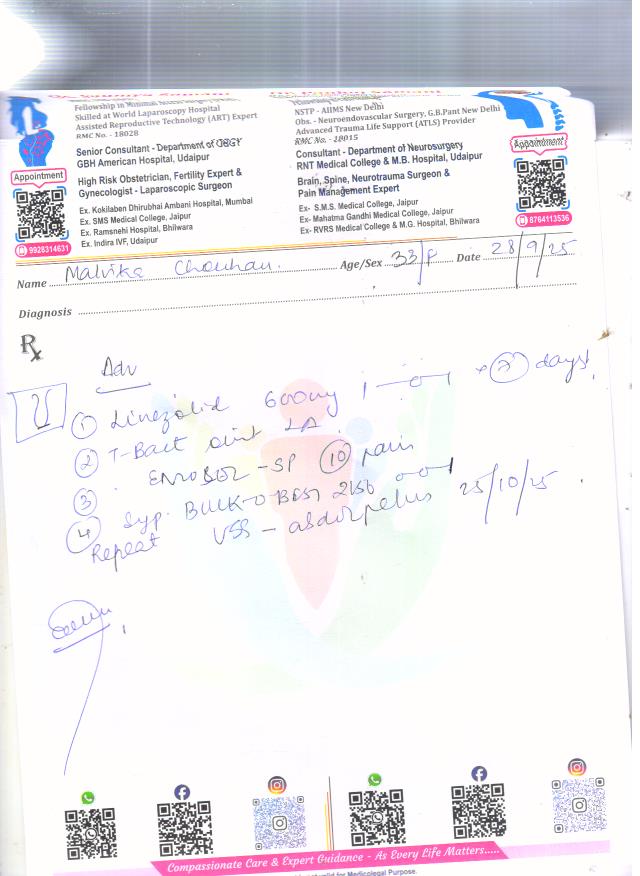 Fellowship in Minimal
Skilled at World Laparoscopy Hospital
Assisted Reproductive Technology (ART) Expert
RMC No. - 18028
Senior Consultant - Department of OBGY
GBH American Hospital, Udaipur
High Risk Obstetrician, Fertility Expert &
Gynecologist - Laparoscopic Surgeon
Ex. Kokilaben Dhirubhai Ambani Hospital, Mumbai
Ex. SMS Medical College, Jaipur
Ex. Ramsnehi Hospital, Bhilwara
Ex. Indira IVF, Udaipur
Appointment
9928314631
NSTP - AIIMS New Delhi
Obs. - Neuroendovascular Surgery, G.B.Pant New Delhi
Advanced Trauma Life Support (ATLS) Provider
RMC No. - 18015
Consultant - Department of Neurosurgery
RNT Medical College & M.B. Hospital, Udaipur
Brain, Spine, Neurotrauma Surgeon &
Pain Management Expert
Ex- S.M.S. Medical College, Jaipur
Ex- Mahatma Gandhi Medical College, Jaipur
Ex- RVRS Medical College & M.G. Hospital, Bhilwara
Appointment
8764113536
Name Malvika Chouhan. Age/Sex 33/F Date 28/9/25
Diagnosis
Rx
Adv
① Linezolid 600mg 1 days
② T-Bact oint LA
③ -SP ⑩
④ Syp.
Repeat USS - 25/10/25
Compassionate Care & Expert Guidance - As Every Life Matters.....
valid for Medicolegal Purpose.